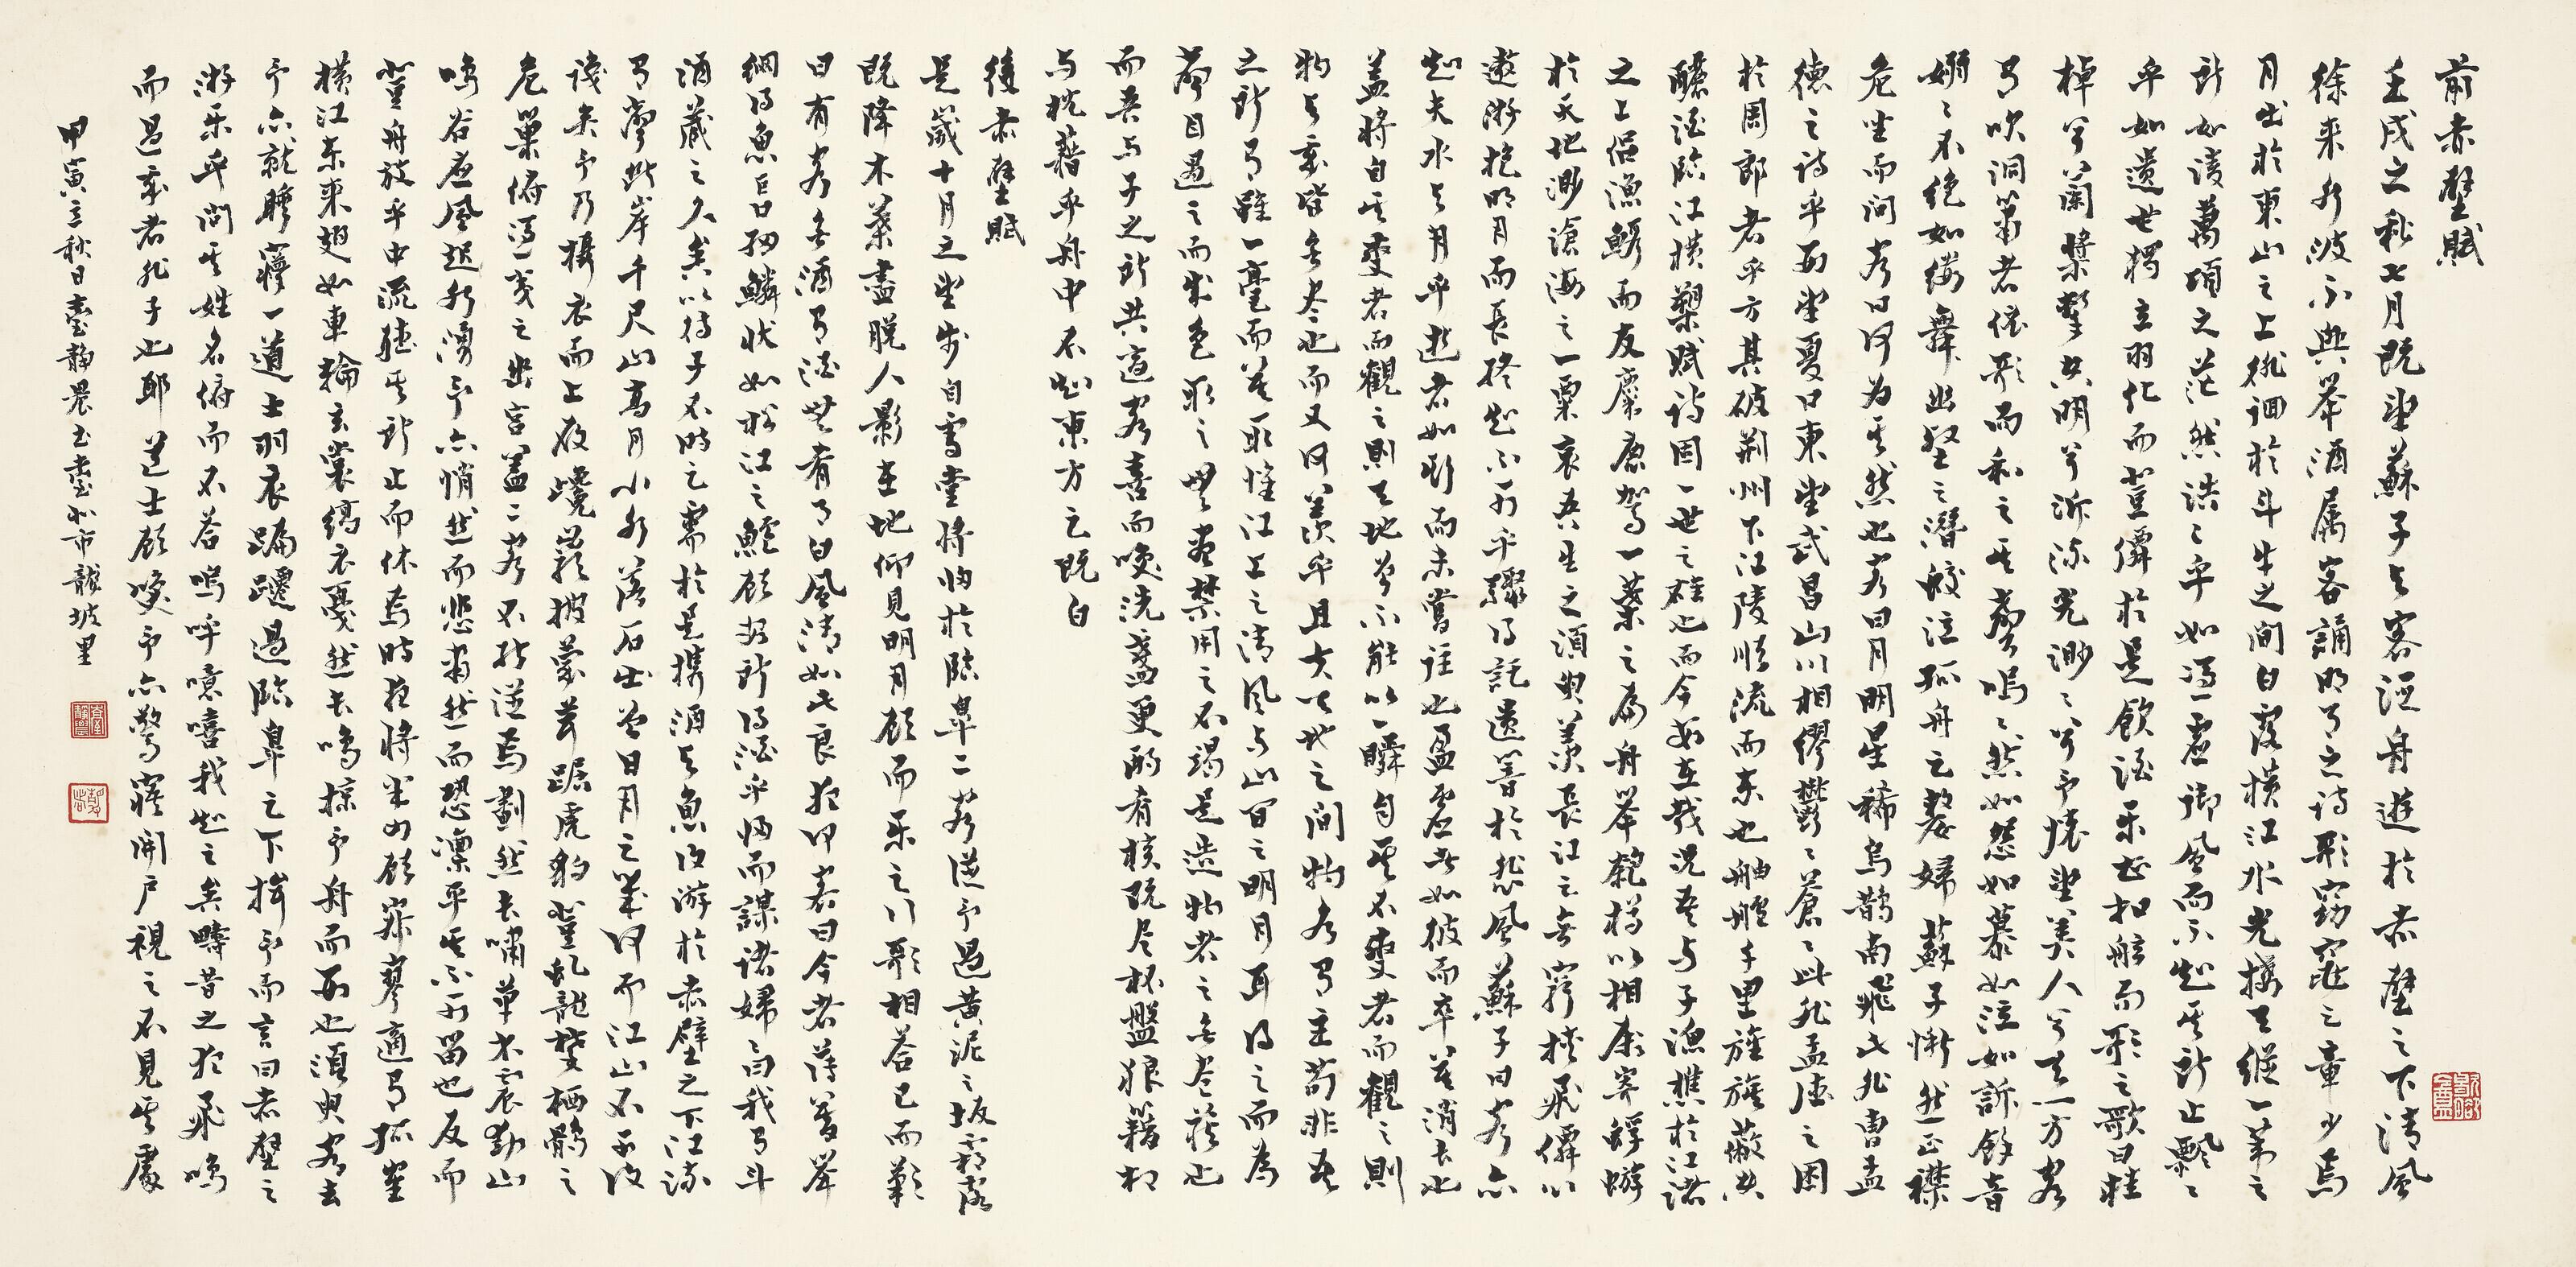 前赤壁賦
壬戌之秋七月既望蘇子与客泛舟遊於赤壁之下清風
徐来水波不興舉酒属客誦明月之詩歌窈窕之章少焉
月出於東山之上徘徊於斗牛之間白露横江水光接天縱一葦之
所如凌萬頃之茫然浩々乎如馮虛御風而不知其所止飄々
乎如遺世獨立羽化而登僊於是飲酒乐甚扣舷而歌之歌曰桂
棹兮蘭槳擊空明兮泝流光渺々兮予懷望美人兮天一方客
有吹洞簫者依歌而和之其聲嗚々然如怨如慕如泣如訴餘音
嫋々不絕如縷舞幽壑之潛蛟泣孤舟之嫠婦蘇子愀然正襟
危坐而问客曰何为其然也客曰月明星稀烏鵲南飛此非曹孟
德之詩乎西望夏口東望武昌山川相繆鬱々蒼々此非孟德之困
於周郎者乎方其破荊州下江陵順流而东也舳艫千里旌旗蔽空
釃酒臨江横槊賦詩固一世之雄也而今安在哉況吾与子漁樵於江渚
之上侶漁鰕而友麋鹿駕一葉之扁舟舉匏樽以相屬寄蜉蝣
於天地渺滄海之一粟哀吾生之須臾羨長江之無窮挾飛僊以
遨游抱明月而長終知不可乎驟得託遺響於悲風蘇子曰客亦
知夫水与月乎逝者如斯而未嘗往也盈虛者如彼而卒莫消長也
盖將自其變者而觀之則天地曾不能以一瞬自其不變者而觀之則
物与我皆無尽也而又何羨乎且夫天地之间物各有主苟非吾
之所有雖一毫而莫取惟江上之清风与山间之明月耳得之而為
聲目遇之而成色取之無盡禁用之不竭是造物者之無尽藏也
而吾与子之所共適客喜而笑洗盞更酌肴核既尽杯盤狼籍相
与枕藉乎舟中不知東方之既白
後赤壁賦
是歲十月之望步自雪堂將归於臨皐二客從予過黄泥之坂霜露
既降木葉盡脱人影在地仰見明月顧而乐之行歌相答已而歎
曰有客無酒有酒無肴月白風清如此良夜何客曰今者薄暮舉
網得魚巨口細鱗狀如松江之鱸顧安所得酒乎归而謀諸婦々曰我有斗
酒藏之久矣以待子不時之需於是攜酒与魚復游於赤壁之下江流
有聲断岸千尺山高月小水落石出曾日月之幾何而江山不可復
識矣予乃攝衣而上履巉巖披蒙茸踞虎豹登虬龍攀栖鶻之
危巢俯馮夷之幽宮盖二客不能從焉劃然長嘯草木震動山
鳴谷應風起水湧予亦悄然而悲肅然而恐凛乎其不可留也反而
登舟放乎中流聽其所止而休焉時夜將半四顧寂寥適有孤崔
横江东来翅如車輪玄裳縞衣戛然長鳴掠予舟而西也須臾客去
予亦就睡夢一道士羽衣蹁躚過臨皐之下揖予而言曰赤壁之
游乐乎問其姓名俯而不答嗚呼噫嘻我知之矣疇昔之夜飛鳴
而過我者非子也耶道士顧笑予亦驚寤開戶視之不見其處
甲寅立秋日臺靜農书臺北市龍坡里